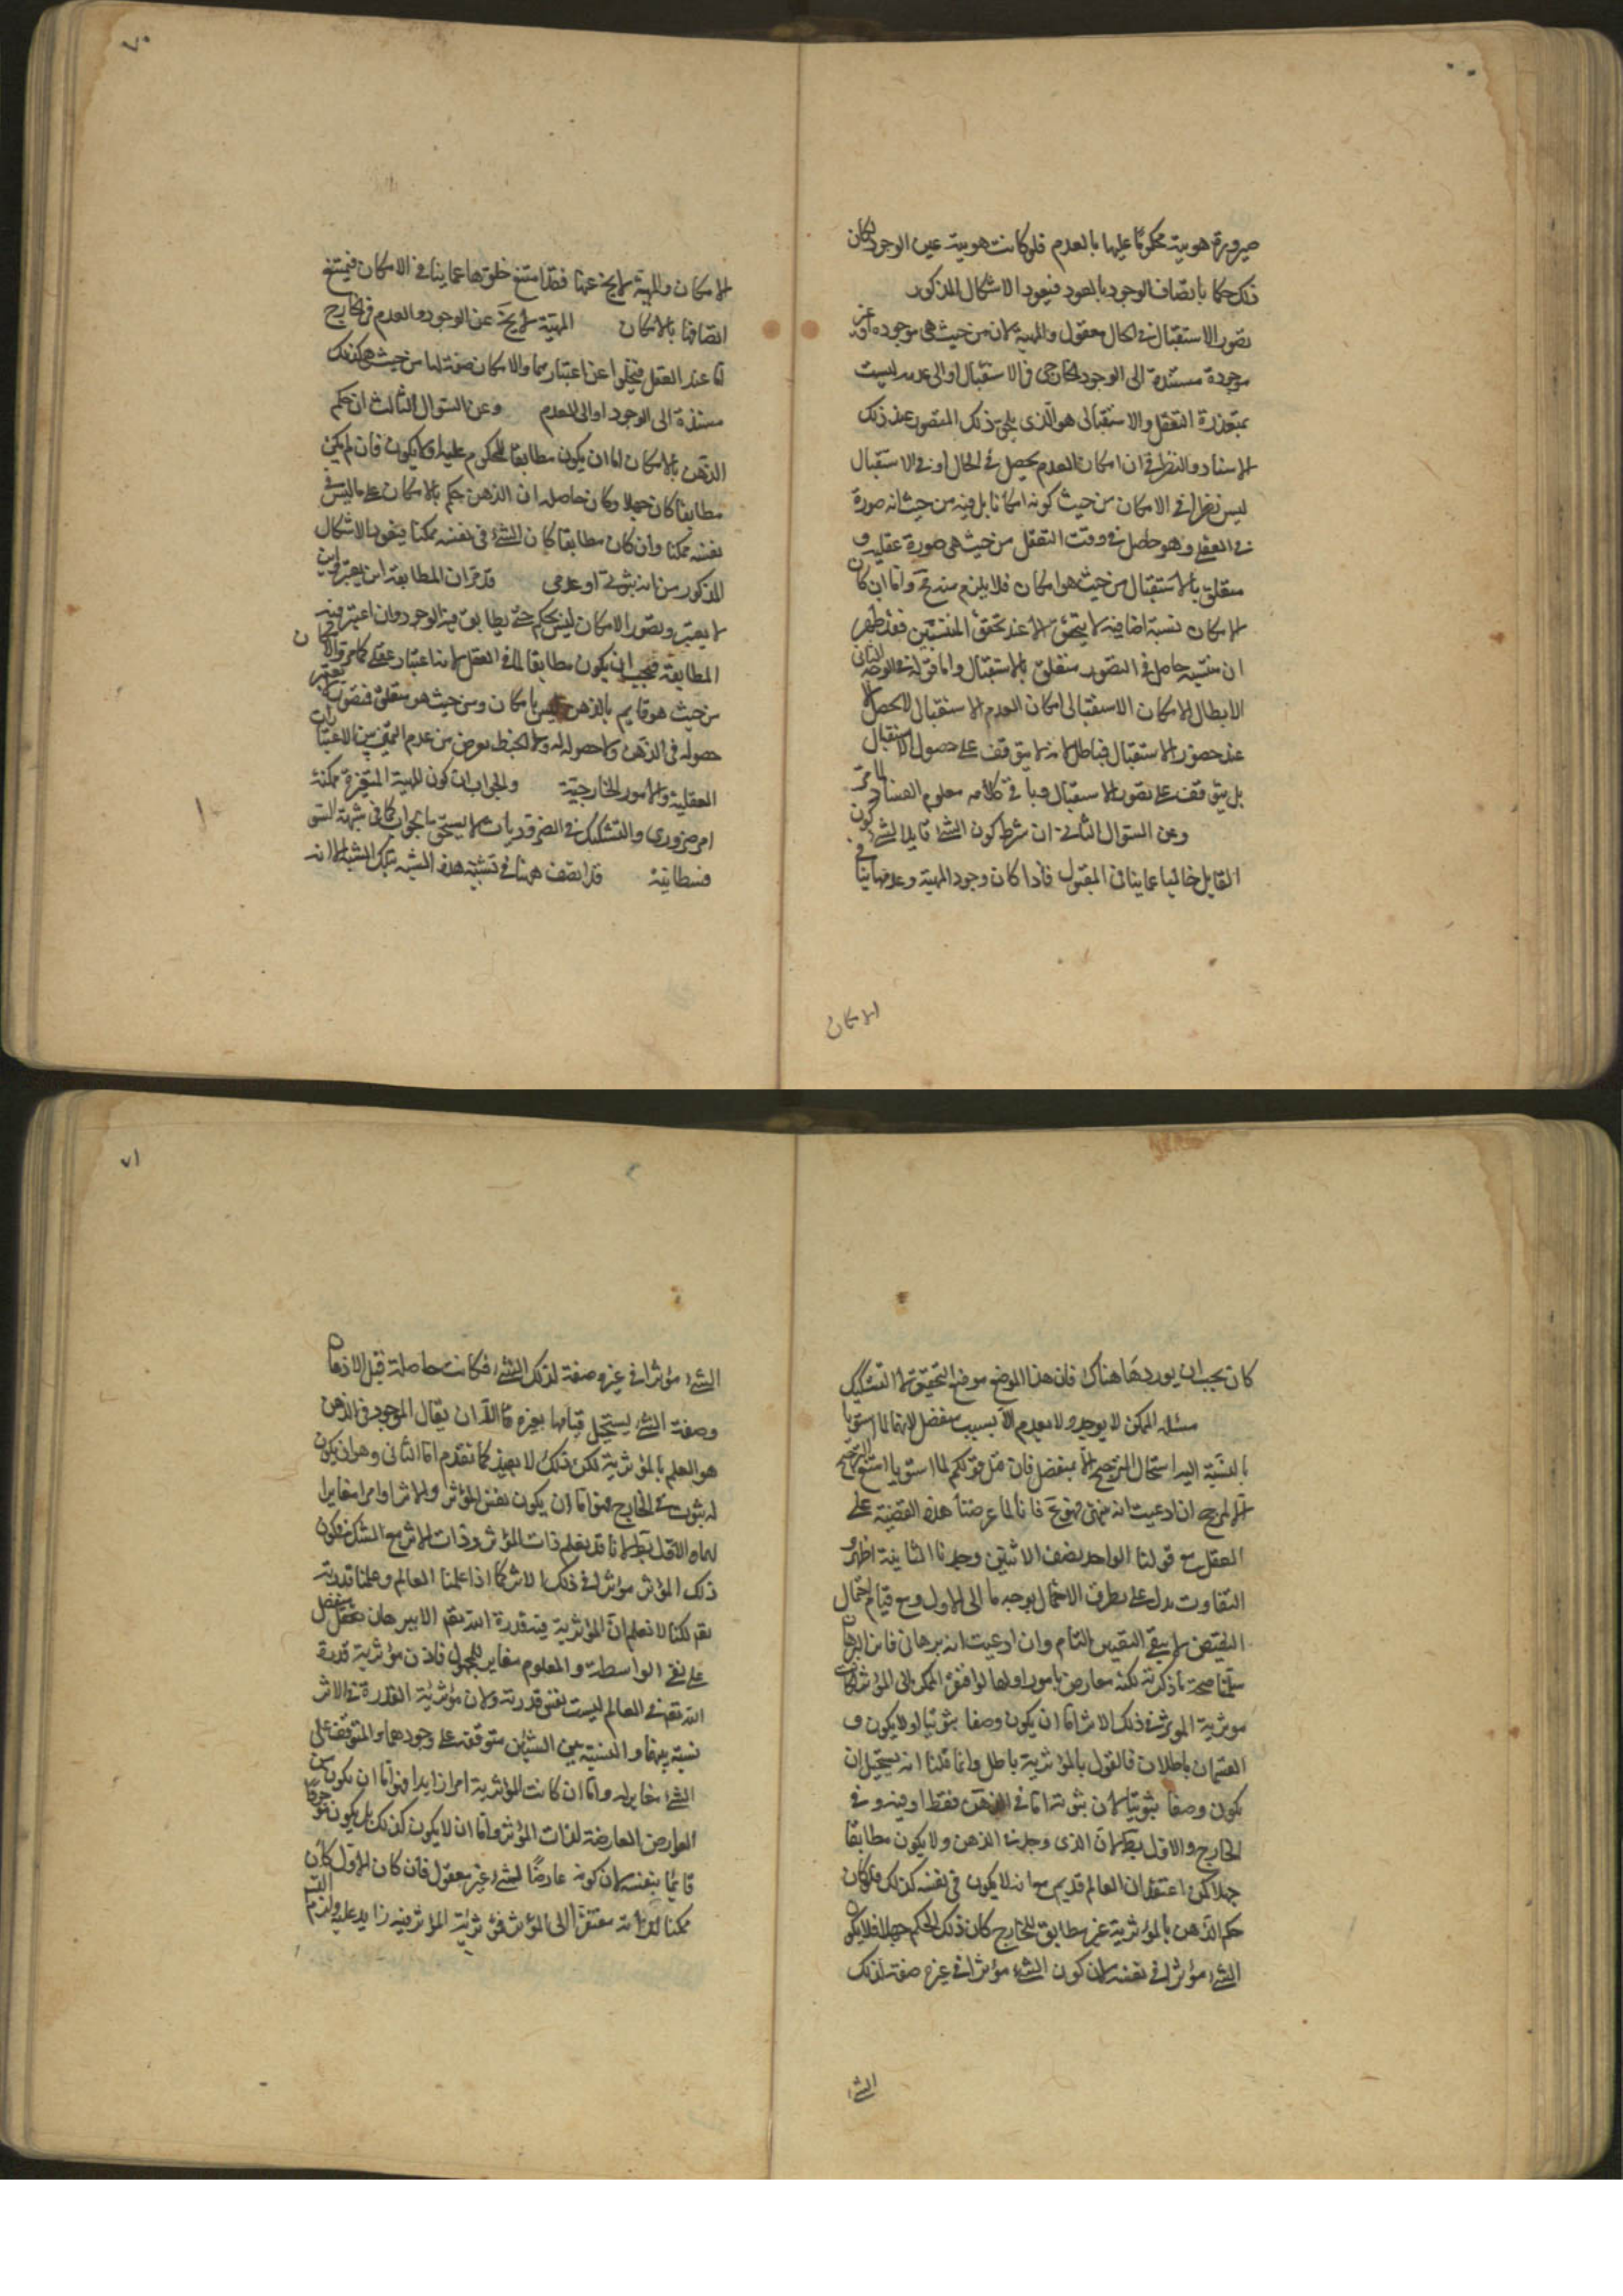 صيرورة هويته محكومًا عليها بالعدم فلو كانت هويته عين الوجود لكان
ذلك حكما باتصاف الوجود بالعدم فيعود الاشكال المذكور
تصور الاستقبال فى الحال معقول والمهية لا من حيث هى موجوده او غير
موجودة مسندة الى الوجود الخارجى فى الاستقبال او الى عدمه ليست
بمتعذرة التعقل والاستقبالى هو الذى يلحق ذلك المتصور عند ذلك
الاسناد والنظر فى ان امكان العدم يحصل فى الحال او فى الاستقبال
ليس نظرا فى الامكان من حيث كونه امكانا بل فيه من حيث انه صورة
فى العقل وهو حاصل فى وقت التعقل من حيث هى صورة عقلية و
متعلق بالاستقبال من حيث هو امكان فلا يلزم منه مح واما ان كان
الامكان نسبة اضافية لا يتحقق الا عند تحقق المنتسبين فقد ظهر
ان منتسبيه حاصل فى التصور متعلق بالاستقبال واما قوله فى الوجه الثانى
لابطال الامكان الاستقبالى امكان العدم الاستقبالى لا يحصل الا
عند حضور الاستقبال فباطل لانه لا يتوقف على حصول الاستقبال
بل يتوقف على تصور الاستقبال وباقى كلامه معلوم الفساد لما مر
وعن السؤال الثانى ان شرط كون الشئ قابلا لشئ كون
القابل خاليا عما ينافى المقبول فاذا كان وجود المهية وعدمها ينافى
الامكان
٧٠
الامكان والمهية لا يخ عنهما فقد امتنع خلوها عما ينافى الامكان فيمتنع
اتصافها بالامكان المهية لا يخ عن الوجود والعدم فى الخارج
اما عند العقل فيخلوا عن اعتبارهما والامكان صفة لها من حيث هى كذلك
مسندة الى الوجود او الى العدم وعن السؤال الثالث ان حكم
الذهن بالامكان اما ان يكون مطابقا للمحكوم عليه او لا يكون فان لم يكن
مطابقا كان جهلا وكان حاصله ان الذهن حكم بالامكان على ما ليس فى
نفسه ممكنا وان كان مطابقا كان الشئ فى نفسه ممكنا فيعود الاشكال
المذكور من انه ثبوتى او عدمى قد مر ان المطابقة اين يعتبر واين
لا يعتبر وتصور الامكان ليس بحكم حتى يطابق فيه الوجود وان اعتبر فيه
المطابقة فيجب ان يكون مطابقا لما فى العقل لانه اعتبار عقلى كما مر والامكان
من حيث هو قايم بالذهن ليس بامكان ومن حيث هو متعلق فتصور يعتبر
حصوله فى الذهن ولا حصوله له والخبط يعرض من عدم التميز بين الاعتبارات
العقلية والامور الخارجية والجواب ان كون المهية المتغيرة ممكنة
امر ضرورى والتشكيك فى الضروريات لا يستحق الجواب كما فى شبهة السو
فسطائية قد انصف ههنا فى تشبيه هذه الشبه بتلك الشبه الا انه
كان يجب ان يوردها هناك فان هذا الموضع موضع التحقيق لا التشكيك
مسئله الممكن لا يوجد ولا يعدم الا بسبب منفصل لانهما لما استويا
بالنسبة اليه استحال الترجيح الا بمنفصل فان قيل قولكم لما استويا امتنع الترجيح
الا لمرجح ان ادعيت انه ضرورى فهو مح فانا لما عرضنا هذه القضية على
العقل مع قولنا الواحد نصف الاثنين وجدنا الثانية اظهر و
التفاوت يدل على تطرق الاحتمال بوجه ما الى الاول ومع قيام احتمال
النقيض لا يبقى اليقين التام وان ادعيت انه برهانى فاين البرهان
سلمنا صحة ما ذكرته لكنه معارض بامور اولها لو افتقر الممكن الى المؤثر لكان
موثرية الموثر فى ذلك الاثر اما ان يكون وصفا ثبوتيا او لا يكون و
القسمان باطلان فالقول بالمؤثرية باطل وانما قلنا انه يستحيل ان
يكون وصفا ثبوتيا لان ثبوته اما فى الذهن فقط او فيه وفى
الخارج والاول بط لان الذى وجد فى الذهن ولا يكون مطابقا
جهلا كمن اعتقد ان العالم قديم مع انه لا يكون فى نفسه كذلك فلو كان
حكم الذهن بالمؤثرية غير مطابق للخارج كان ذلك الحكم جهلا فلا يكون
الشئ مؤثرا فى نفسه لان كون الشئ مؤثرا فى غيره صفة لذلك
الشئ
٧١
الشئ مؤثرا فى غيره صفة لذلك الشئ فكانت حاصلة قبل الاذهان
وصفة الشئ يستحيل قيامها بغيره فاما ان يقال الموجود فى الذهن
هو العلم بالمؤثرية لكن ذلك لا يفيد كما تقدم اما الثانى وهو ان يكون
له ثبوت فى الخارج فهو اما ان يكون نفس المؤثر والاثر او امرا مغايرا
لهما والاول بط لانا قد نعلم ذات المؤثر وذات الاثر مع الشك فى كون
ذلك المؤثر مؤثرا فى ذلك الاثر كما اذا علمنا العالم وعلمنا قدرته
تعم لكنا لا نعلم ان المؤثرية فيه قدرة الله تعم الا ببرهان منفصل
على نفى الواسطة والمعلوم مغاير للمجهول فاذن مؤثرية قدرة
الله تعم فى العالم ليست نفس قدرته ولان مؤثرية القدرة فى الاثر
نسبة بينهما والنسبة بين الشيئين متوقفة على وجودهما والمتوقف على
الشئ مغاير له واما ان كانت المؤثرية امرا زايدا فهو اما ان يكون من
العوارض العارضة لذات المؤثر واما ان لا يكون كذلك بل يكون موجودًا
قائمًا بنفسه لان كونه عارضًا لشئ غير معقول فان كان الاول كان
ممكنا لذاته مفتقرا الى المؤثر فمؤثرية المؤثر فيه زايد عليه ولزم التس